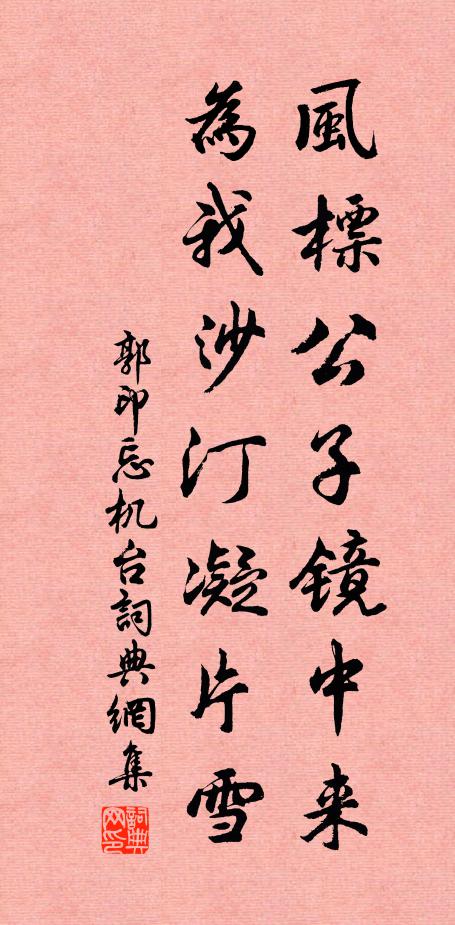 風標公子镜中来
為我沙汀凝片雪
郭印忘机台詞典網集
詞典网印